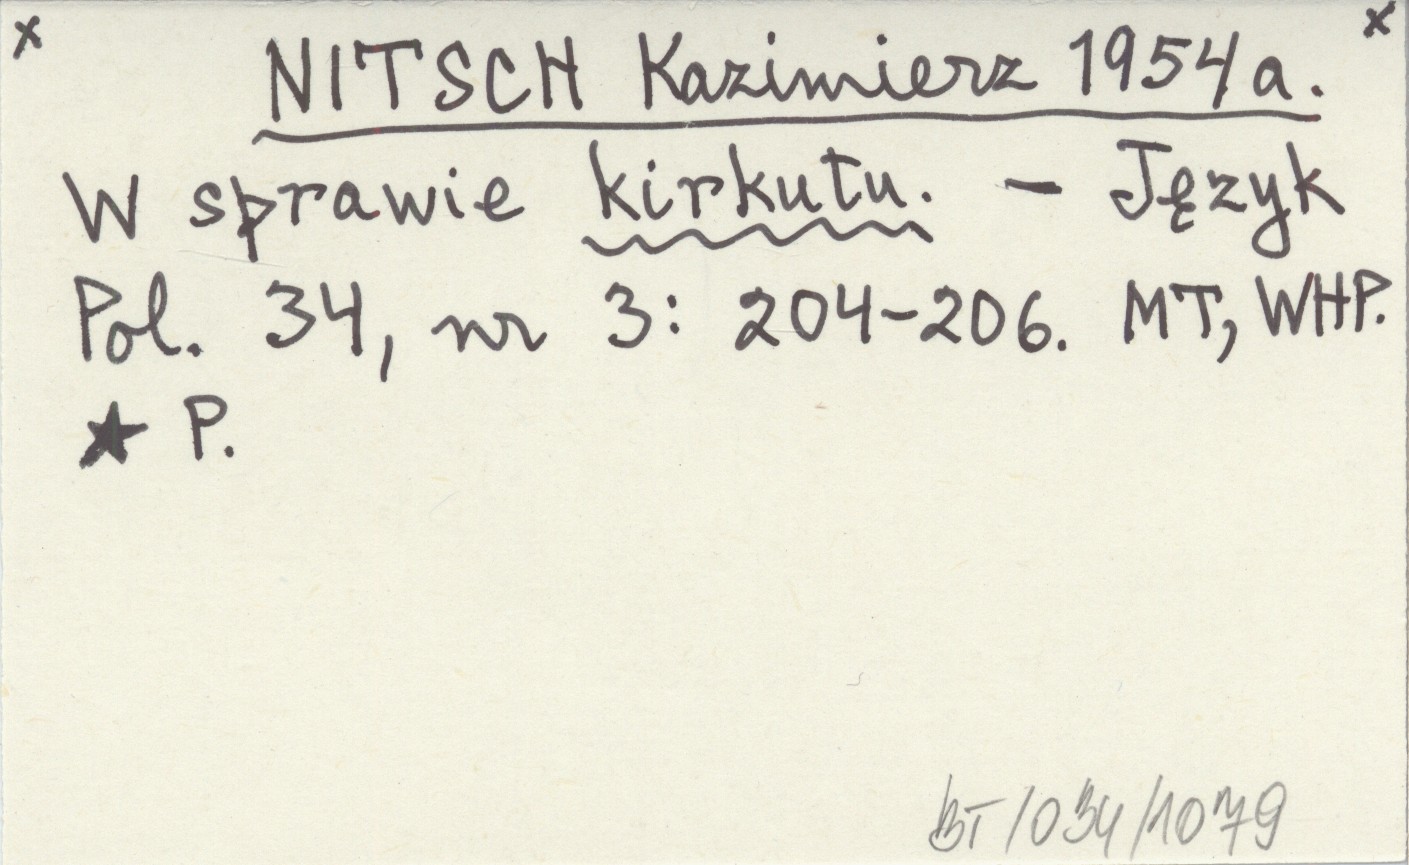 x x
NITSCH Kazimierz 1954a.
W sprawie kirkutu. – Język
Pol. 34, nr 3: 204-206. MT, WHP.
★ P.
BT/034/1079